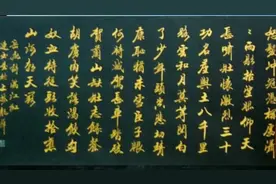 雨歇抬望眼仰天
長嘯壯懷激烈三十
功名塵與土八千里
路雲和月莫等閒白
了少年頭空悲切靖
康恥猶未雪臣子恨
何時滅駕長車踏破
賀蘭山缺壯志飢餐
胡虜肉笑談渴飲匈
奴血待從頭收拾舊
山河朝天闕